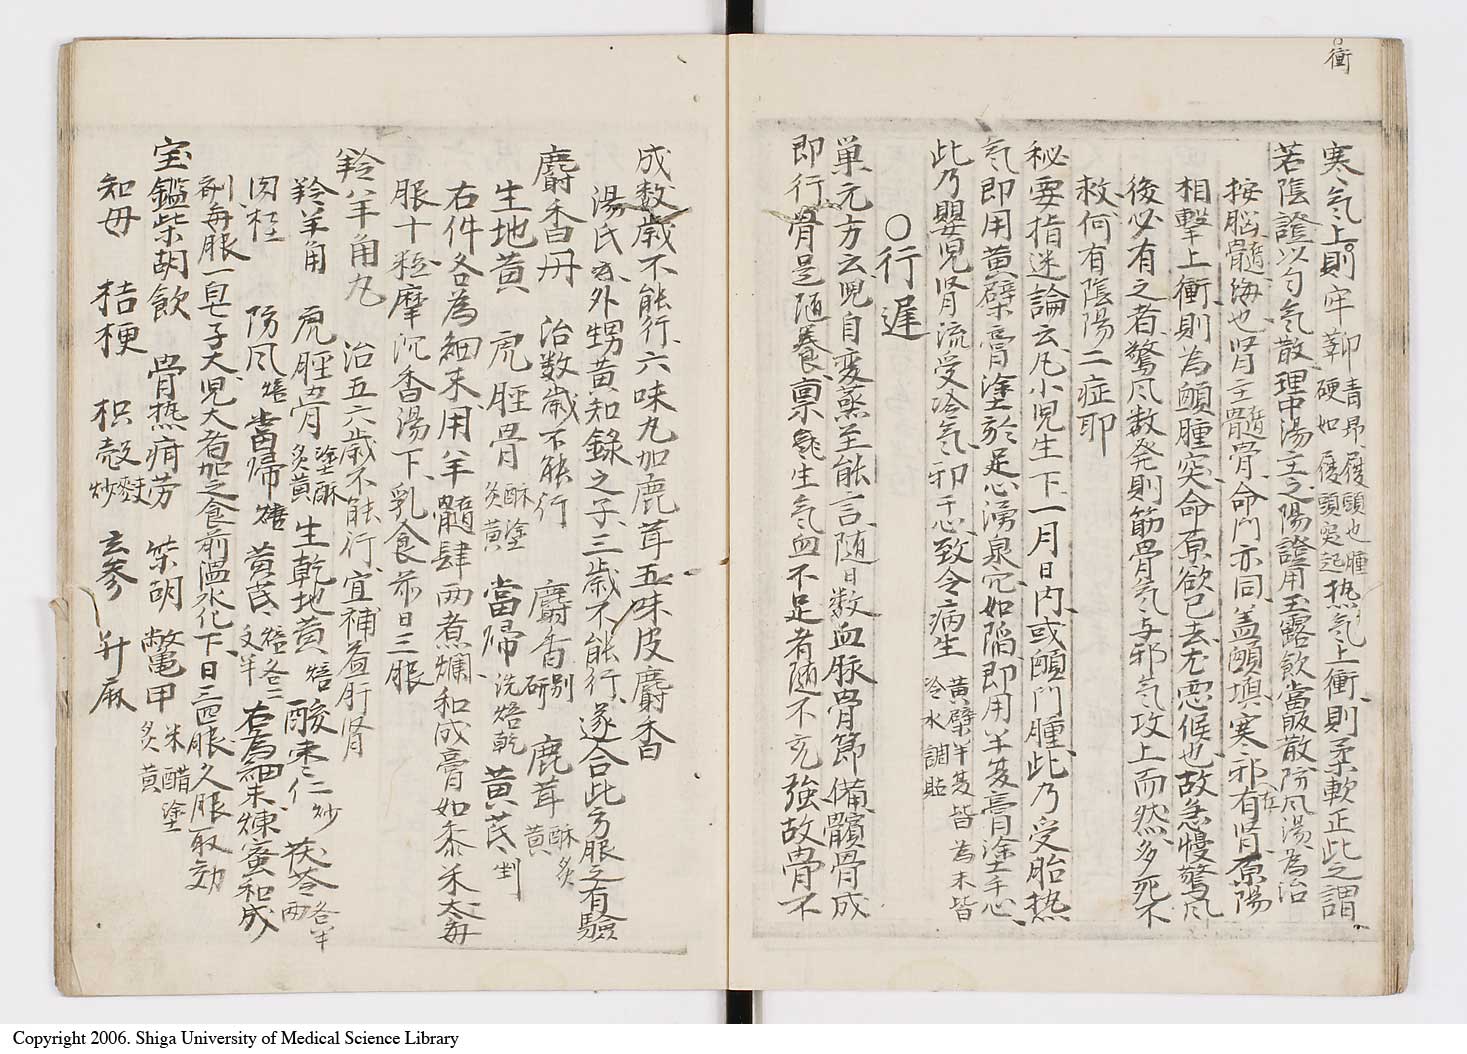 衝
寒气上則牢鞕 青昂屐頭也腫硬如屐頭突起 热气上衝則柔軟正此之謂
若陰證以匀气散理中湯主之陽證用玉露飲當皈散防风湯為治
按脳髓海也肾主髓骨命門亦同盖顖填寒邪有在肾原陽
相擊上衝則為顖腫突命原欲已去尤悪候也故急慢驚风
後必有之者驚风数発則筋骨气与邪气攻上而然多死不
救何有陰陽二症耶
秘要指迷論云凡小児生下一月日内或顖門腫此乃受胎热
气即用黄檗膏塗於足心湧泉穴如陥即用半夏膏塗手心
此乃嬰児肾流受冷气邪干心致令病生 黄檗半夏皆為末皆冷水調貼
○行遅
巣元方云児自変蒸至能言随日数血脉骨節備髕骨成
即行骨是随養禀生气血不足者随不充強故骨不
成数歳不能行六味丸加鹿茸五味皮麝香
湯氏云外甥黄知録之子三歳不能行遂合此方服之有驗
麝香丹 治数歳不能行 麝香別研 鹿茸酥炙黄
生地黄 虎脛骨酥塗炙黄 當帰洗焙乾 黄芪剉
右件各為細末用羊髓肆両煮爛和成膏如黍禾大每
服十粒摩沉香湯下乳食前日三服
羚羊角丸 治五六歳不能行宜補益肝肾
羚羊角 虎脛骨塗酥炙黄 生乾地黄焙 酸枣仁炒 茯苓各半両
肉桂 防风焙 當帰焙 黄芪焙各二文半 右為細末煉蜜和成
剤每服一皂子大児大者加之食前温水化下日三四服久服取効
宝鑑柴胡飲 骨热疳労 柴胡 鱉甲米醋塗炙黄
知母 桔梗 枳殻麩炒 玄参 升麻
Copyright 2006. Shiga University of Medical Science Library